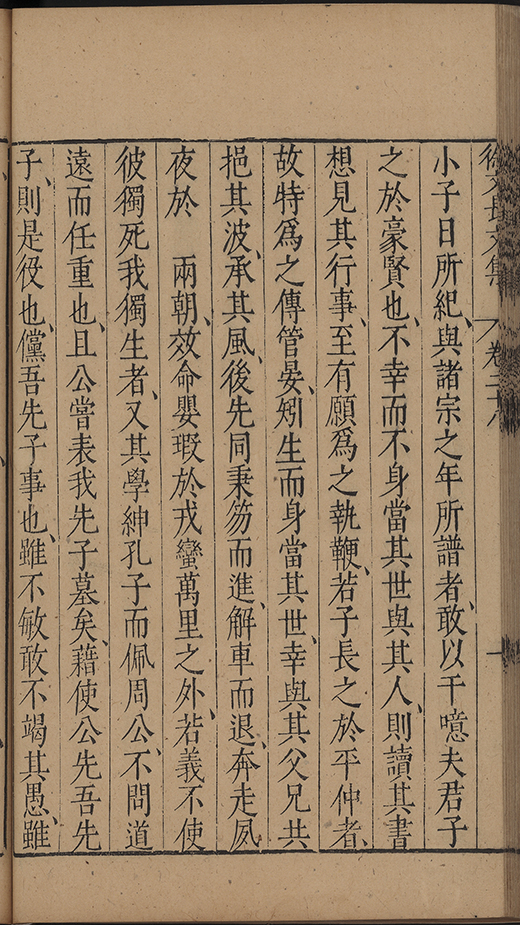 徐文長文集 卷二十八 一
小子日所紀、與諸宗之年所譜者、敢以干噫夫君子
之於豪賢也、不幸而不身當其世與其人、則讀其書
想見其行事、至有願爲之執鞭、若子長之於平仲者、
故特爲之傳管晏、矧生而身當其世、幸與其父兄共
挹其波、承其風、後先同秉笏而進、解車而退、奔走夙
夜於　兩朝、效命嬰瑕於戎蠻萬里之外、若義不使
彼獨死我獨生者、又其學紳孔子而佩周公、不問道
遠而任重也、且公嘗表我先子墓矣、藉使公先吾先
子、則是役也、儻吾先子事也、雖不敏敢不竭其愚、雖